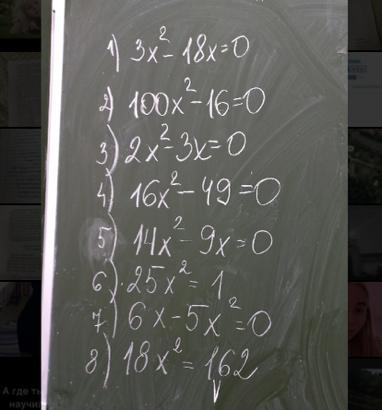 1) 3x² - 18x = 0
2) 100x² - 16 = 0
3) 2x² - 3x = 0
4) 16x² - 49 = 0
5) 14x² - 9x = 0
6) 25x² = 1
7) 6x - 5x² = 0
8) 18x² = 162
А где ты
научи